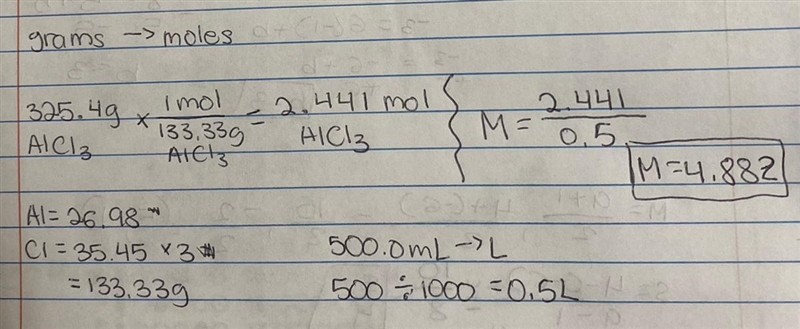 grams → moles
325.4g × 1 mol / 133.33g = 2.441 mol
AlCl3 AlCl3 AlCl3
M = 2.441 / 0.5
M=4.882
Al = 26.98
Cl = 35.45 × 3
= 133.33g
500.0mL → L
500 ÷ 1000 = 0.5L